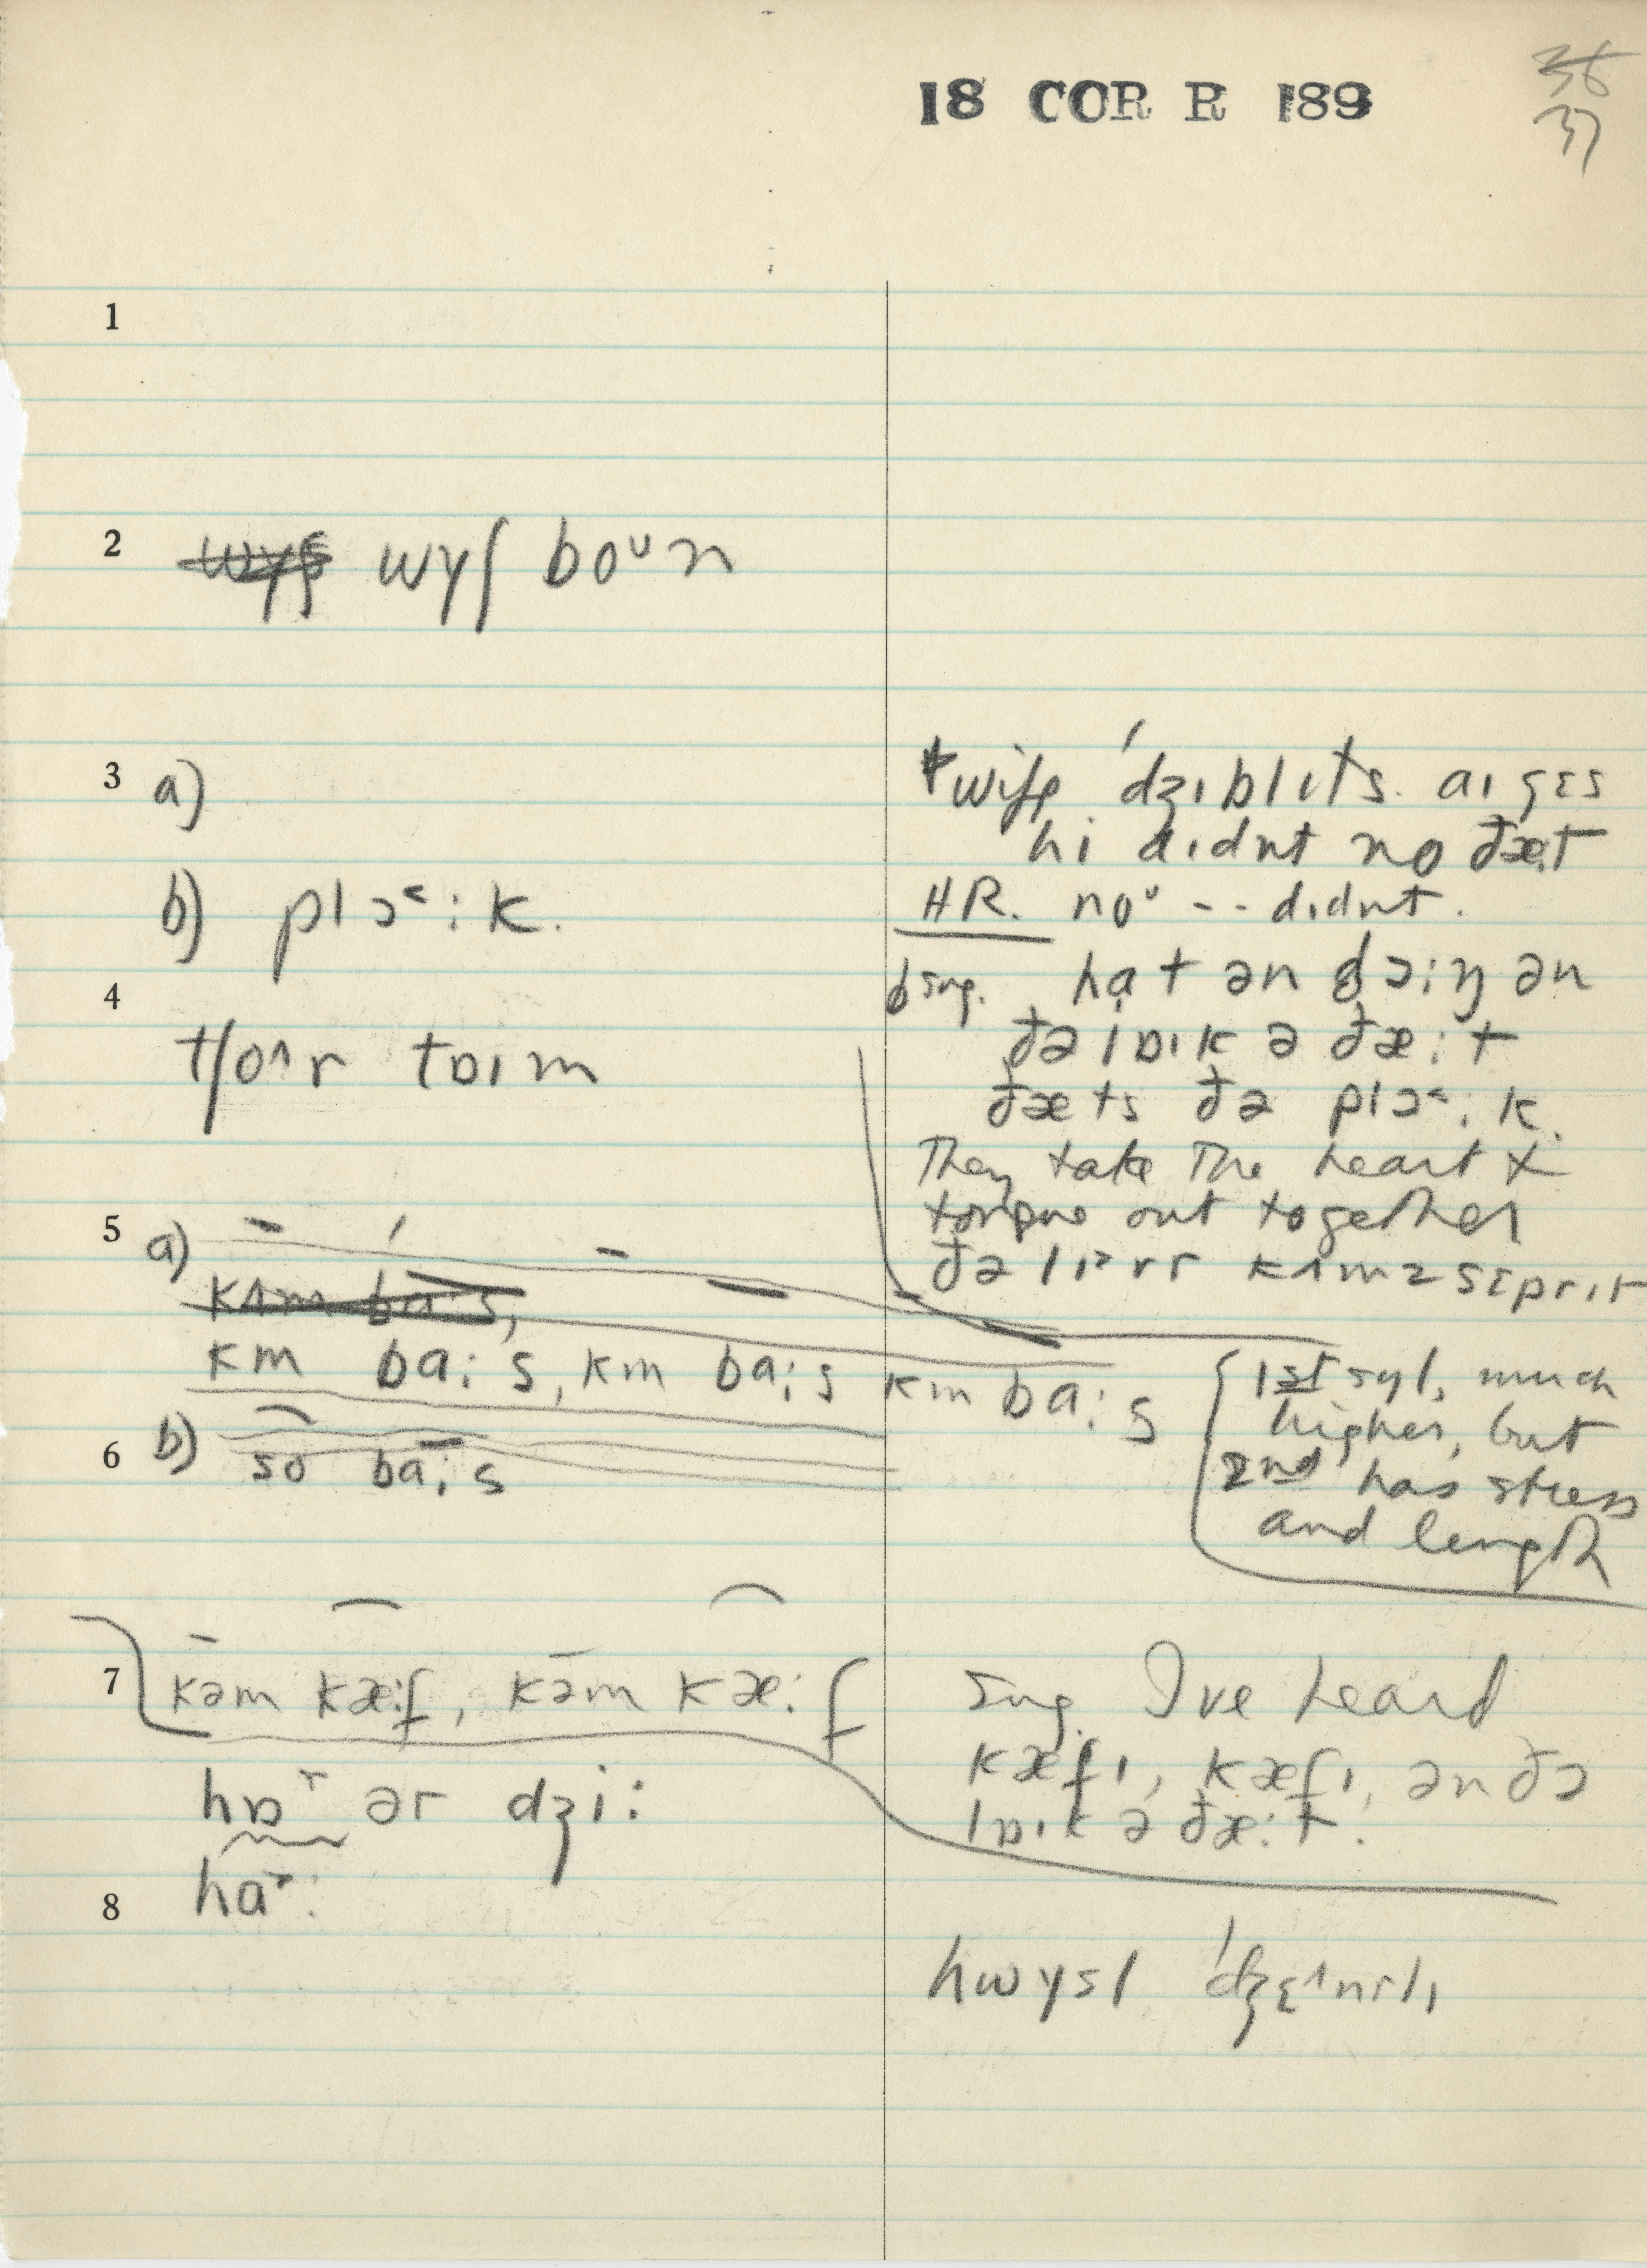 18 COR R 189
36
37
1
2 wyʃ boᵘn
3 a)
ˈdʒɪblɪts. aɪ gɛs
hi dɪdnt no ðæt
b) plɔ˂:k.
HR. noᵘ -- dɪdnt.
hɑt ən
4
ðə laɪk ə ðæ:t
tʃo^r tɒɪm
ðæts ðə plɔ˂:k.
They take the heart +
tongue out together
5 a)
kʌmz sɛprɪt
km ba:s, km ba:s km ba:s
1st syl, much
higher, but
2nd has stress
and length
6 b) so ba:s
7 kəm kæ:f, kəm kæ:f
Sug. I've heard
kæfɪ, kæfɪ, ən ðə
lɒɪk ə ðæ:t.
hɒʳ ər dʒi:
haʳ:
8
hwysl